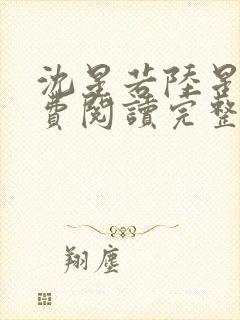 沈星若陸星
費閱讀完整
翔塵